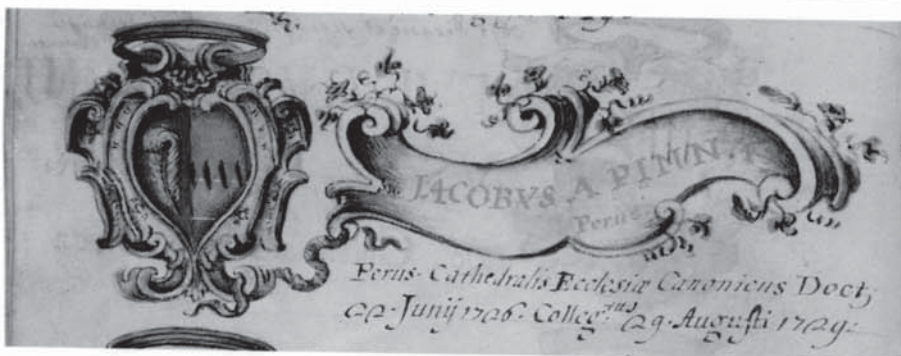 IACOBVS A PITVN.
Perus.
Perus. Cathedralis Ecclesiæ Canonicus Doct;
22. Junij 1726. Colleg.tus 29. Augusti 1729.